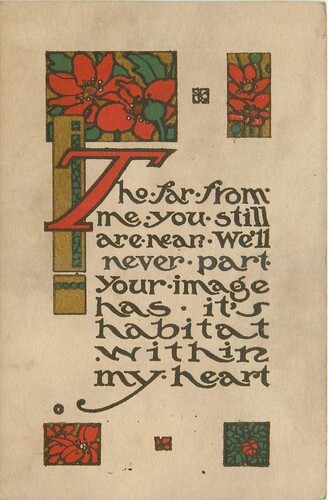 Tho·far·from·
me·you·still
are·near·We'll
never·part
Your·image
has·it's
habitat
·within
my·heart